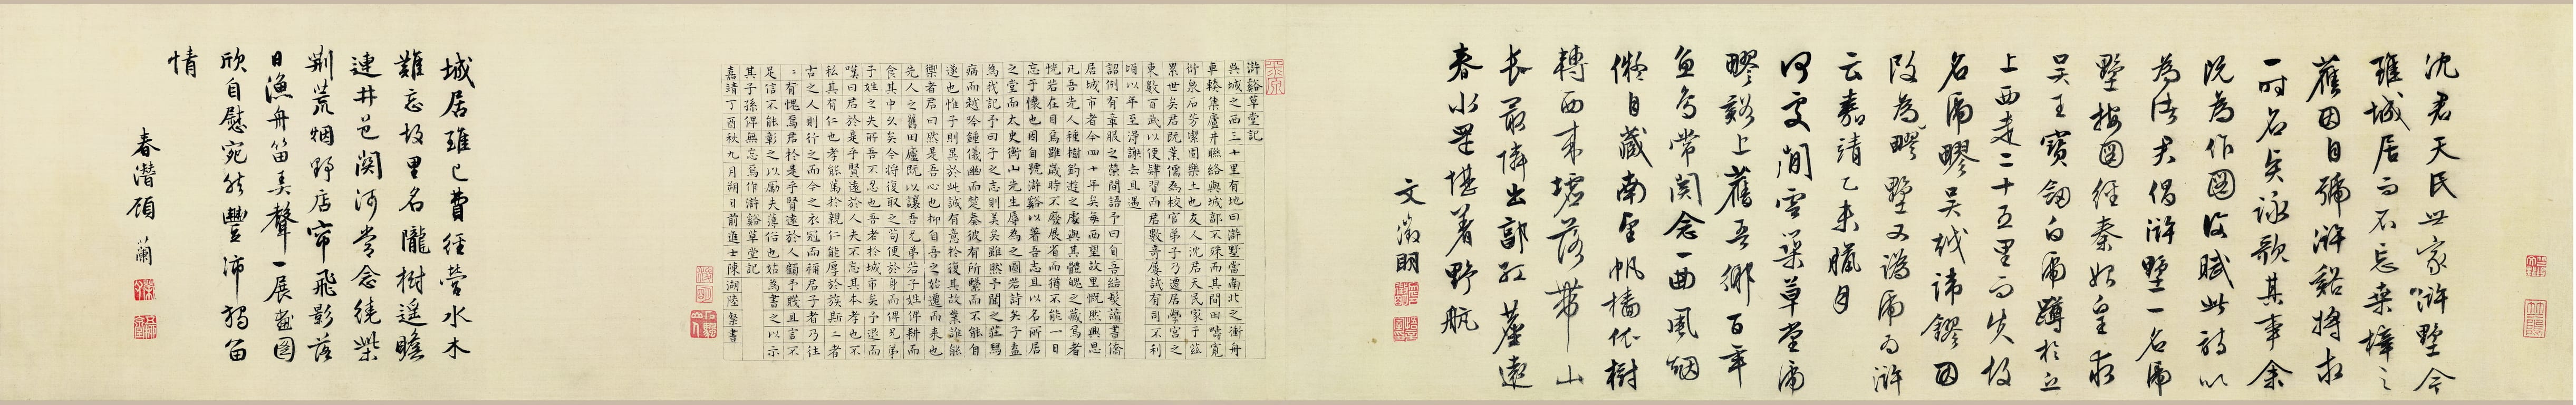 沈君天民世家滸墅今
雖城居而不忘桑梓之
舊因自號滸谿將求
一時名貝詠歌其事余
既為作圖復賦此詩以
為諸君倡滸墅一名虎
墅按圖經秦始皇求
吳王寶劍白虎蹲於丘
上西走二十五里而失故
名虎疁吳越諱鏐因
改為疁墅又譌虎為滸
云嘉靖乙未臘月
何處閒雲築草堂虎
疁谿上舊吾鄉百年
魚鳥常關念一曲風烟
儗自藏南望帆檣依樹
轉西來墟落帶山
長最憐出郭紅塵遠
春水還堪著野航
文徵明
滸谿草堂記
吳城之西三十里有地曰滸墅當南北之衝舟
車輳集廬井聯絡與城郭不殊而其間田疇寬
衍泉石芳潔固樂土也友人沈君天民家于茲
累世矣君既業儒為校官弟子乃遷居學宮之
東數百武以便肄習而君數奇屢試有司不利
頃以年至得謝去且遇
詔例有章服之榮間語予曰自吾結髮讀書僑
居城市者今四十年矣每西望故里慨然興思
凡吾先人種樹釣遊之處與其體魄之藏焉者
恍若在目焉雖歲時不廢展省而猶不能一日
忘于懷也因自號滸谿以著吾志且以名所居
之堂而太史衡山先生辱為之圖若詩矣子盍
為我記予曰子之志則美矣雖然予聞之莊舄
病而越吟鍾儀幽而楚奏彼有所繫而不能自
遂也惟子則異於此誠有意於復其故業誰能
禦者君曰然是吾心也抑自吾之始遷而來也
先人之舊田廬既以讓吾兄弟若子姓得耕而
食其中久矣今將復取之苟便於身而俾兄弟
子姓之失所吾不忍也吾老於城市矣予退而
嘆曰君於是乎賢遠於人夫不忘其本孝也不
私其有仁也孝能篤於親仁能厚於族斯二者
古之人則行之而今之衣冠而稱君子者乃往
往有愧焉君於是乎賢遠於人顧予賤且言不
足信不能彰之以勵夫薄俗也姑為書之以示
其子孫俾無忘焉作滸谿草堂記
嘉靖丁酉秋九月朔日前進士陳湖陸粲書
城居雖已費經營水木
難忘故里名隴樹遙瞻
連井邑關河常念繞柴
荆荒烟野店帘飛影落
日漁舟笛弄聲一展畫圖
欣自慰宛然豐沛獨留
情
春潛顧蘭